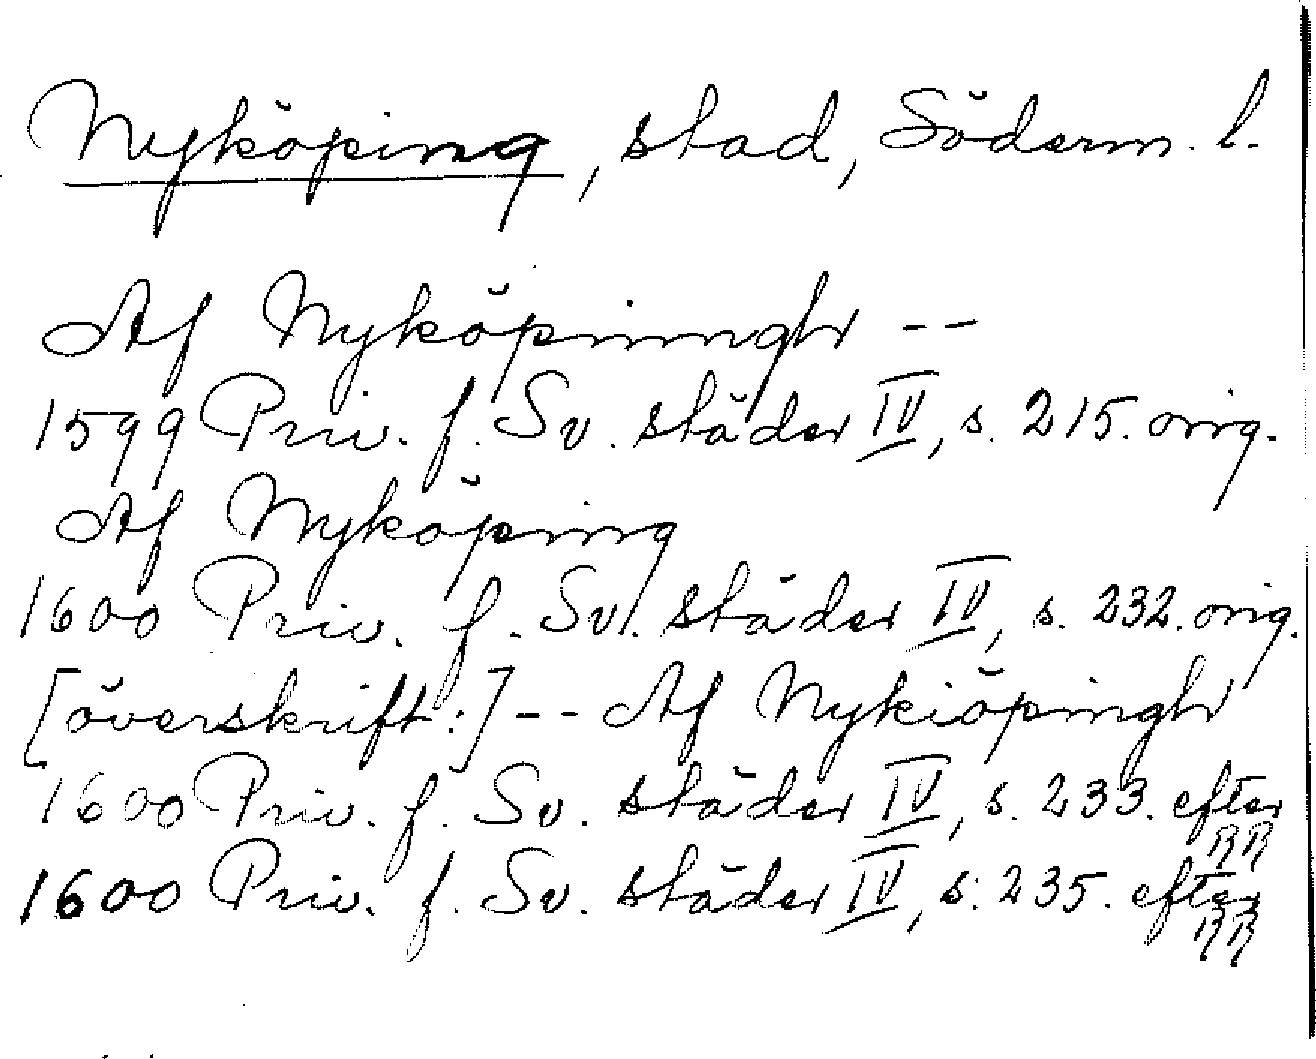 Nyköping, stad, Söderm. l.
Af Nyköpiningh --
1599 Priv. f. Sv. städer IV, s. 215. orig.
Af Nyköping
1600 Priv. f. Sv. städer IV, s. 232. orig.
[överskrift:] -- Af Nykiöpingh
1600 Priv. f. Sv. städer IV, s. 233. efter RR
1600 Priv. f. Sv. städer IV, s. 235. efter RR